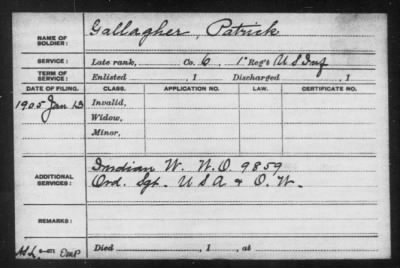 NAME OF SOLDIER: Gallagher, Patrick
SERVICE: Late rank, Co. 6 1" Reg't U S Inf
TERM OF SERVICE: Enlisted , 1 Discharged , 1
DATE OF FILING. CLASS. APPLICATION NO. LAW. CERTIFICATE NO.
1905 Jan 13 Invalid,
Widow,
Minor,
ADDITIONAL SERVICES: Indian W. W.O. 9859
Ord. Sgt. U S A & O. W.
REMARKS:
Died , 1 , at